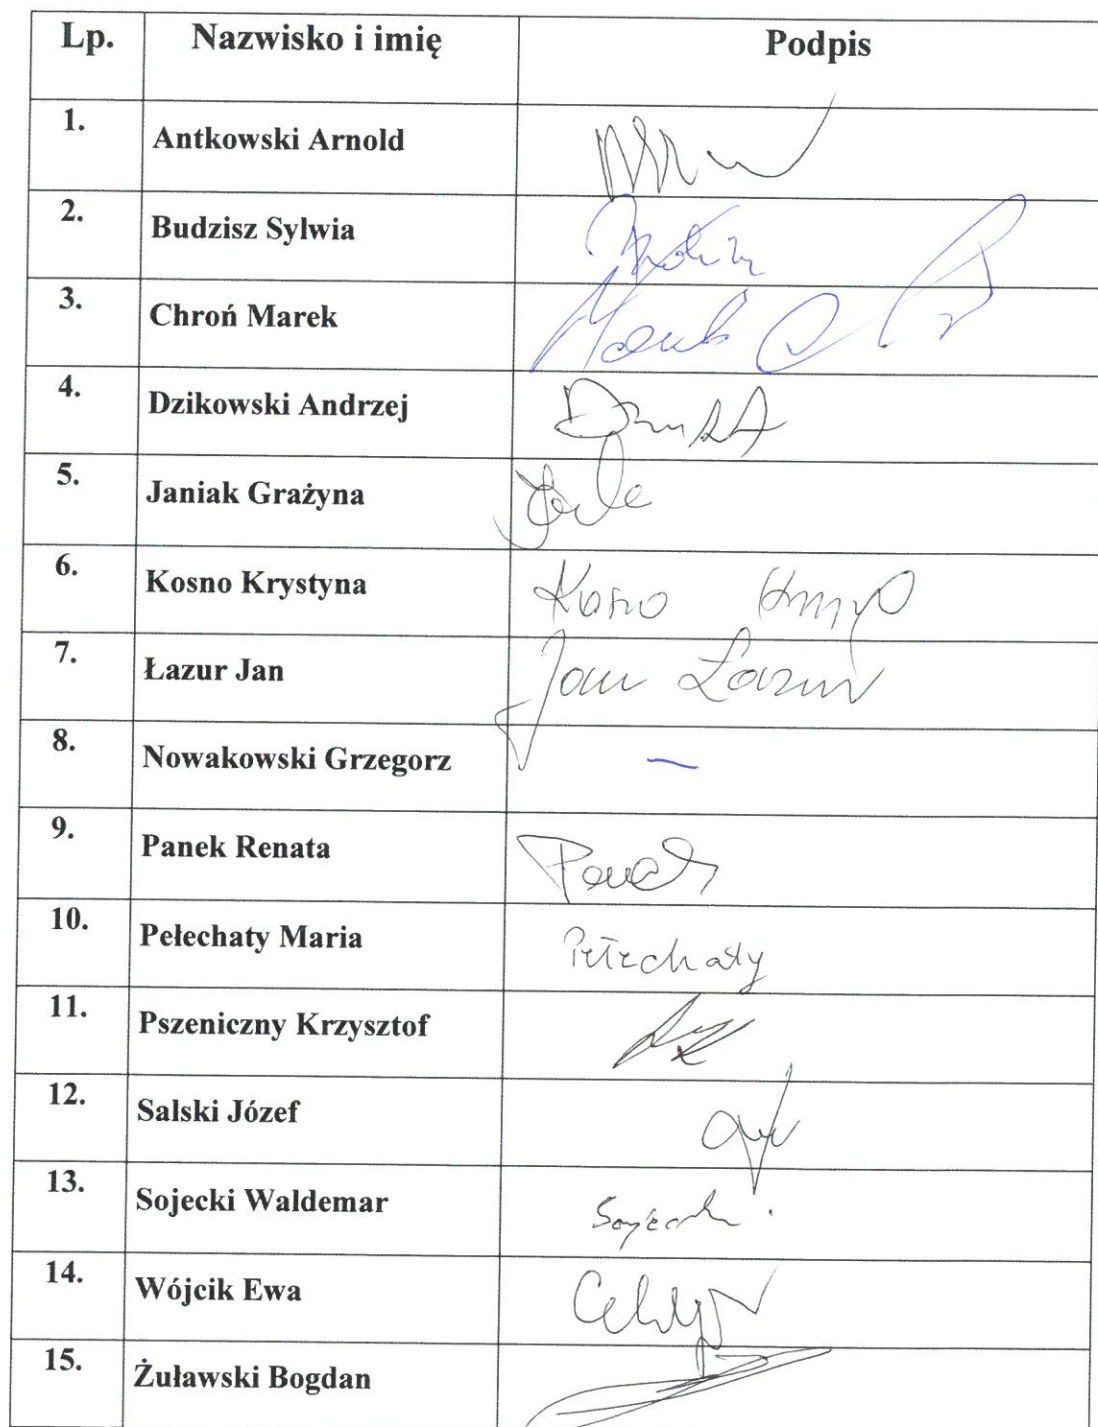 Lp. Nazwisko i imię Podpis
1. Antkowski Arnold
2. Budzisz Sylwia
3. Chroń Marek Marek
4. Dzikowski Andrzej
5. Janiak Grażyna
6. Kosno Krystyna Kosno
7. Łazur Jan Jan Łazur
8. Nowakowski Grzegorz –
9. Panek Renata Panek
10. Pełechaty Maria Pełechaty
11. Pszeniczny Krzysztof
12. Salski Józef
13. Sojecki Waldemar
14. Wójcik Ewa
15. Żuławski Bogdan